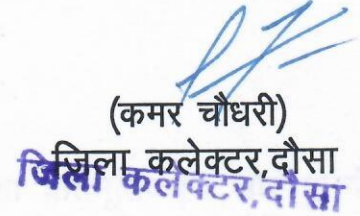 (कमर चौधरी)
ज़िला कलेक्टर,दौसा
जिला कलेक्टर, दौसा